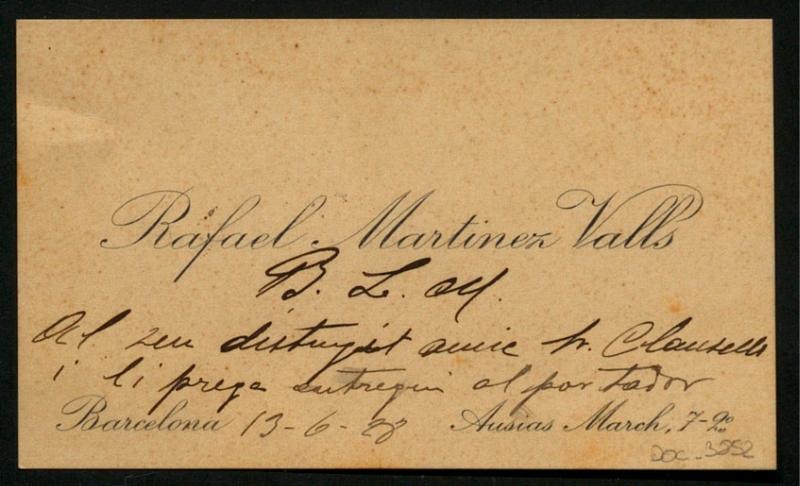 Rafael Martinez Valls
B. L. M.
Al seu distingit amic Sr. Clausells
i li prega entregui al portador
Barcelona 13-6-28 Ausias March, 7-2º
DOC-3552